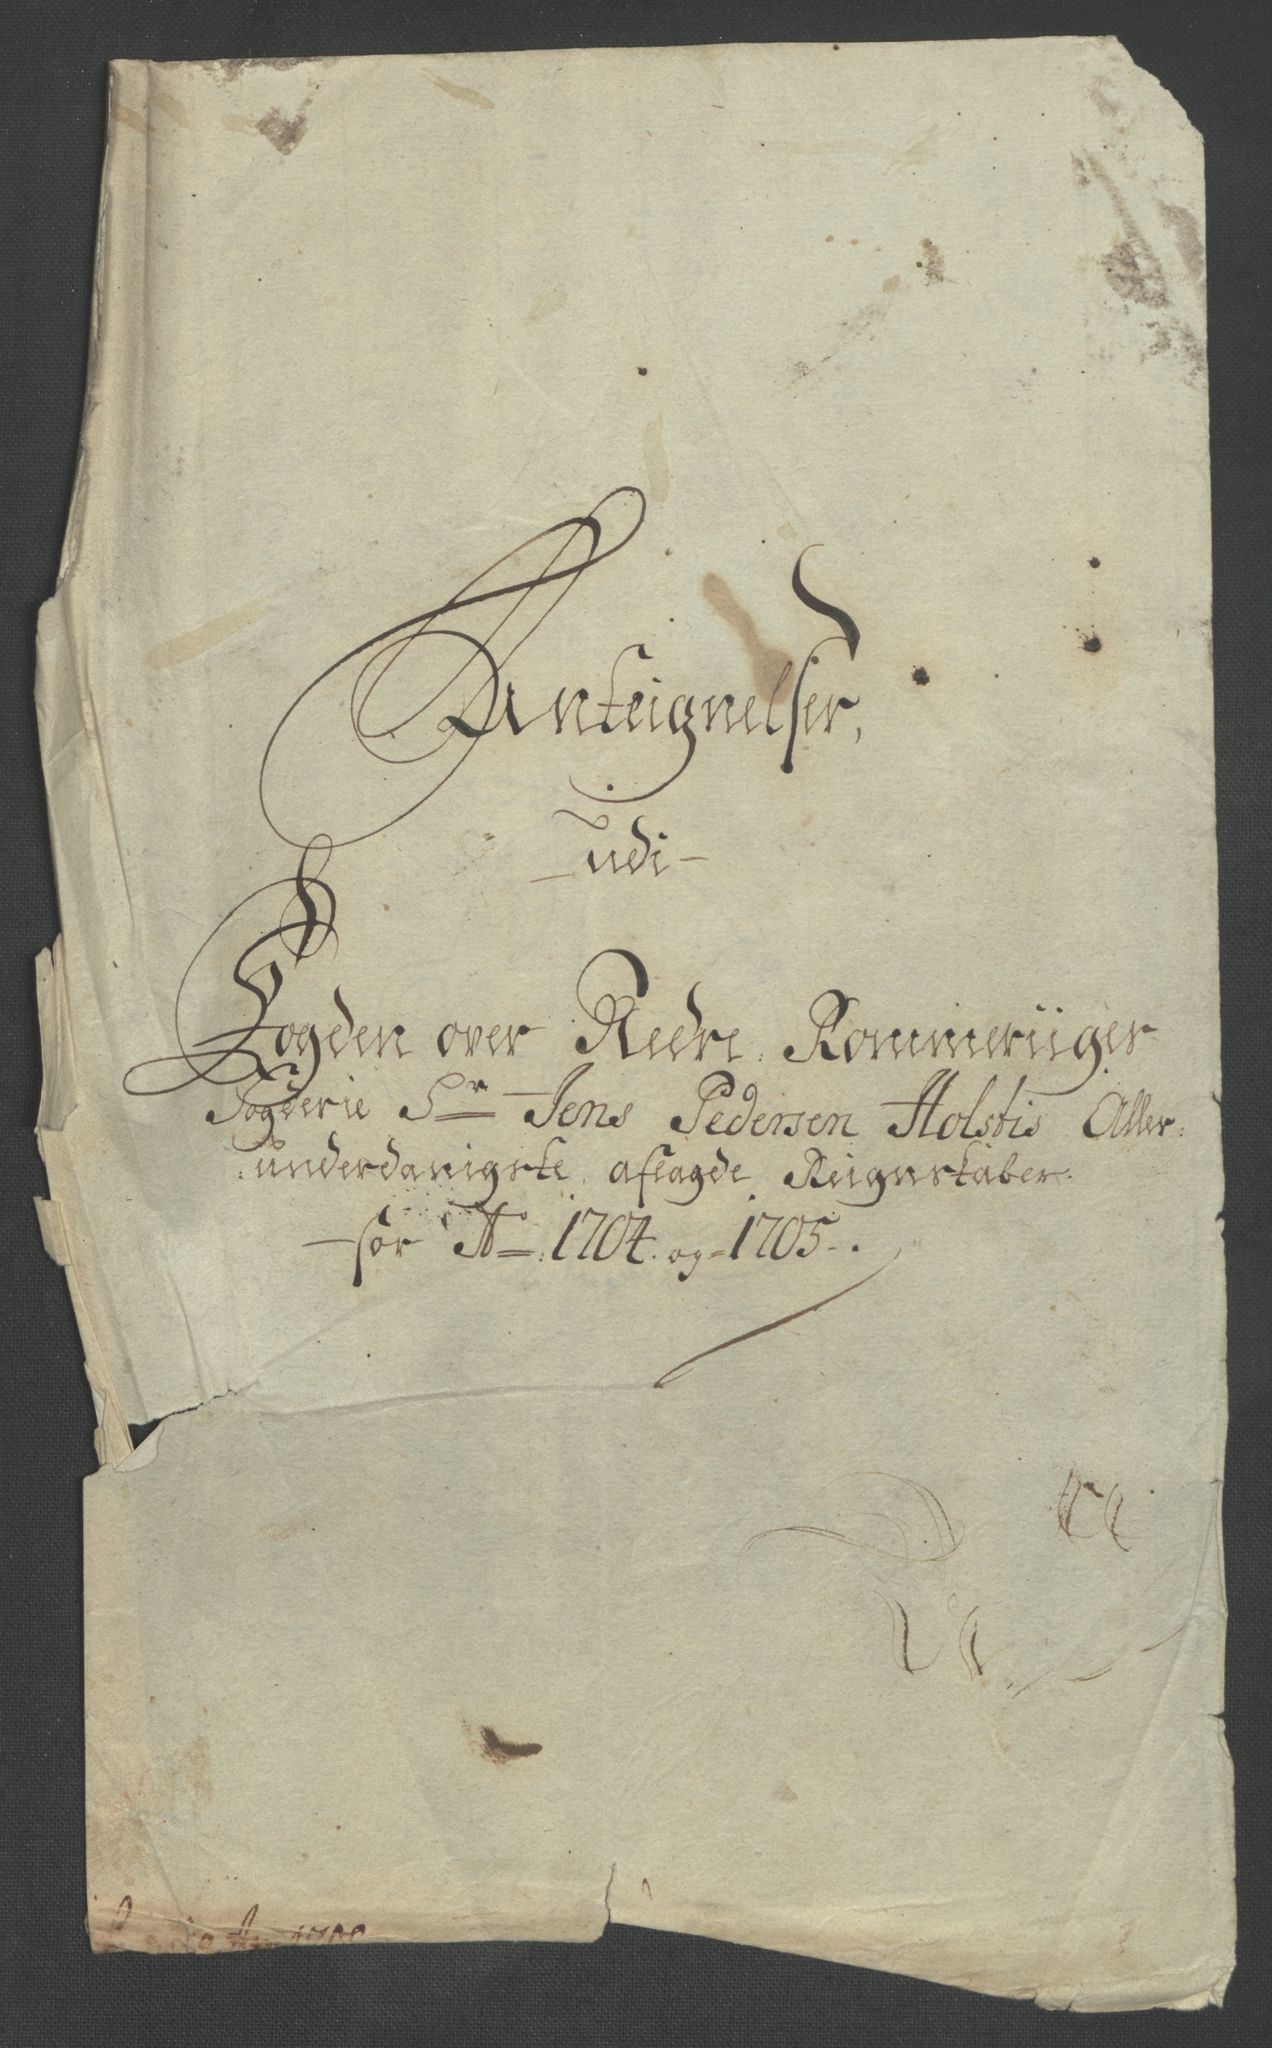 Anteignelser,
udi
Fogden over Nedre Rommeriiges
Fogderie Sr Jens Pedersen Holstis Aller:
:underdanigste aflagde Reignskaber
for Ao: 1704. og 1705.